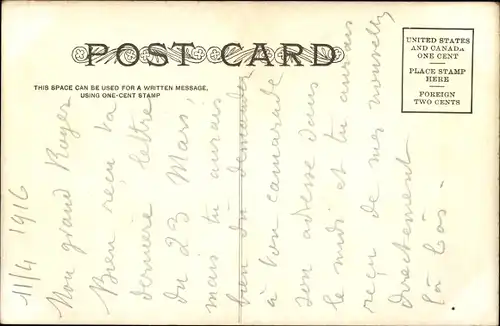 POST CARD
THIS SPACE CAN BE USED FOR A WRITTEN MESSAGE,
USING ONE-CENT STAMP
UNITED STATES
AND CANADA
ONE CENT
PLACE STAMP
HERE
FOREIGN
TWO CENTS
11/4 1916
Mon grand Roger
Bien reçu ta
dernière lettre
du 23 Mars
mais tu aurais
bien du demander
à ton camarade
son adresse dans
le midi et tu aurais
reçu de mes nouvelles
directement